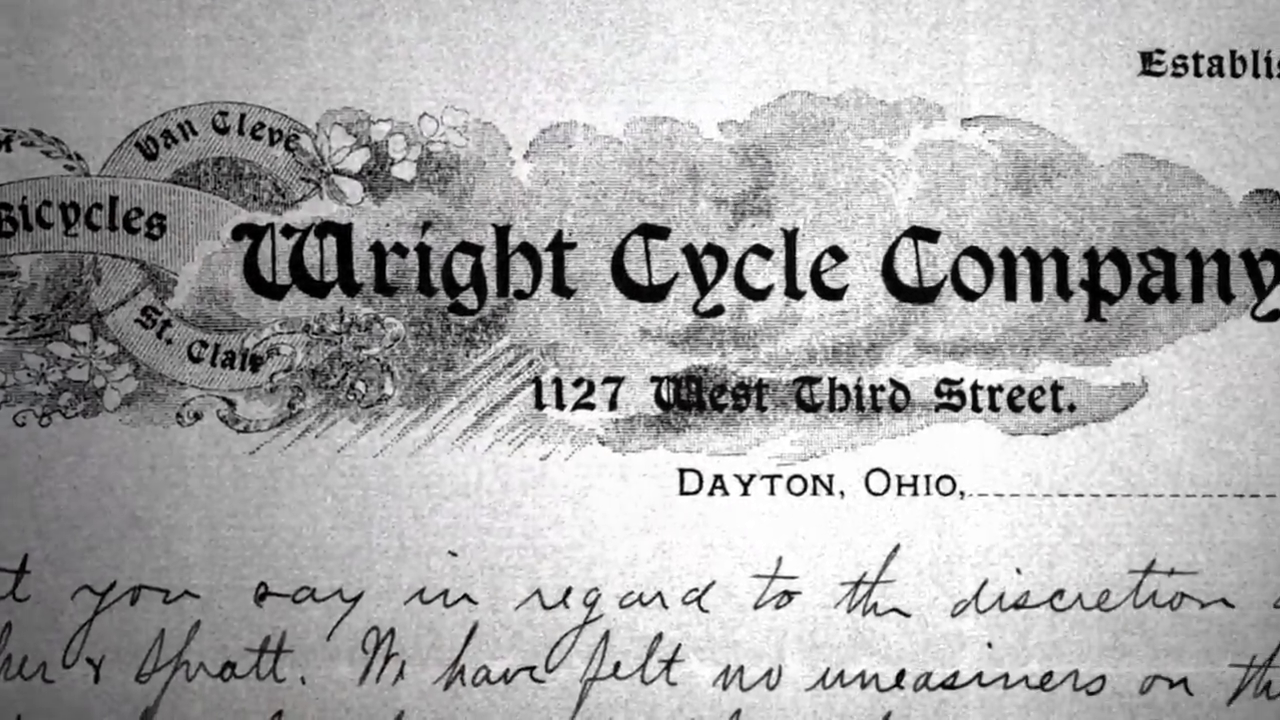 Establis
Van Cleve
Bicycles
Wright Cycle Company
St. Clair
1127 West Third Street.
DAYTON, OHIO,
t you say in regard to the discretion
her & Spratt. We have felt no uneasiness on th